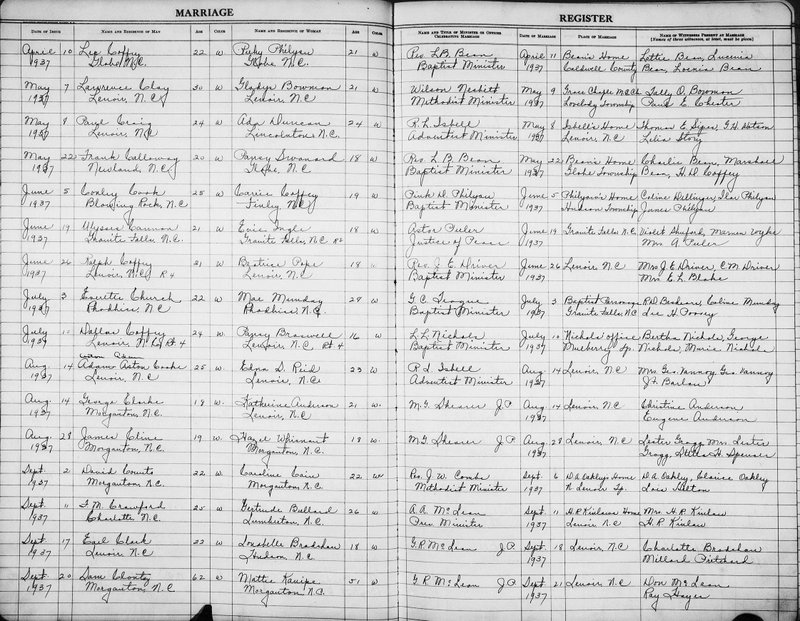 MARRIAGE
REGISTER
DATE OF ISSUE NAME AND RESIDENCE OF MAN AGE COLOR NAME AND RESIDENCE OF WOMAN AGE COLOR NAME AND TITLE OF MINISTER OR OFFICER CELEBRATING MARRIAGE DATE OF MARRIAGE PLACE OF MARRIAGE NAME OF WITNESSES PRESENT AT MARRIAGE
[Names of three witnesses, at least, must be given]
April 10 Lee Coffey 22 W Philyaw 21 W Rev. L.B. Bean April 11 Bean's Home Lottie Bean,
1937 Globe N.C. Globe N.C. Baptist Minister 1937 Caldwell County Bean, Bean
May 7 Lawrence Clay 30 W Gladys Bowman 21 W Wilson Nesbitt May 9 Grace Chapel Tally O. Bowman
1937 Lenoir, N.C. Lenoir, N.C. Methodist Minister 1937 Lovelady Township Paul E. Chester
May 8 Paul Craig 24 W Ada Duncan 24 W R.L. Isbell May 8 Isbell's Home Thomas E. Sipes, G.H.
1937 Lenoir, N.C. Lincolnton N.C. Adventist Minister 1937 Lenoir, N.C. Lelia Story
May 22 Frank Calloway 20 W Pansy 18 W Rev. L.B. Bean May 22 Bean's Home Charlie Bean, Marshall
1937 Newland, N.C. Globe, N.C. Baptist Minister 1937 Globe Township Bean, H.D. Coffey
June 5 Conley Cook 25 W Carrie Coffey 19 W Pink D. Philyaw June 5 Philyaw's Home Coline Dellinger, Philyaw
1937 Blowing Rock, N.C. Finley N.C. Baptist Minister 1937 Hudson Township James Philyaw
June 19 Ulysses Cannon 21 W Evie Ingle 18 W Astor Puler June 19 Granite Falls N.C. Violet Shuford,
1937 Granite Falls N.C. Granite Falls, N.C. R4 Justice of Peace 1937 Mrs A Puler
June 26 Ralph Coffey 21 W Beatrice Pope 18 Rev. J.E. Driver June 26 Lenoir N.C. Mrs J.E. Driver, C.M. Driver
1937 Lenoir, N.C. R4 Lenoir, N.C. Baptist Minister 1937 Mrs E.L. Blake
July 3 Everette Church 22 W Mae Munday 28 W G.C. Teague July 3 Baptist Parsonage Coline Munday
1937 Rhodhiss, N.C. Rhodhiss N.C. Baptist Minister 1937 Granite Falls, N.C. Lee H. Poovey
July Dallas Coffey 24 W Pansy Braswell 16 W L.L. Nichols July 10 Nichols' Office Bertha Nichols, George
1937 Lenoir, N.C. Rt 4 Lenoir, N.C. Rt 4 Baptist Minister 1937 Mulberry Tp. Nichols, Marie Nichols
Aug 14 Adam Aston Cooke 25 W Edna D. Reid 23 W R.L. Isbell Aug 14 Lenoir, N.C. Mrs. Geo. Vannoy, Geo. Vannoy
1937 Lenoir, N.C. Lenoir, N.C. Adventist Minister 1937 J.F. Barlow
Aug. 14 George Clarke 18 W Katherine Anderson 21 W M.G. Shearer J.P. Aug 14 Lenoir, N.C. Christine Anderson
1937 Morganton, N.C. Lenoir, N.C. 1937 Eugene Anderson
Aug 28 James Cline 19 W Hazel Whisnant 18 W M.G. Shearer J.P. Aug. 28 Lenoir, N.C. Lester Gragg, Mrs. Lester
1937 Morganton, N.C. Morganton, N.C. 1937 Gragg, H. Spencer
Sept. 2 David Counts 22 W Caroline Cain 22 W Rev. J.W. Combs Sept. 6 D.A. Oakley's Home D.A. Oakley, Clarice Oakley
1937 Morganton, N.C. Morganton N.C. Methodist Minister 1937 N Lenoir Tp. Lois Hilton
Sept. 11 F.M. Crawford 25 W Gertrude Bullard 26 W A.A. McLean Sept 11 H.P. Kinlaw's Home Mrs. H.P. Kinlaw
1937 Charlotte N.C. Lumberton N.C. Pres. Minister 1937 Lenoir N.C. H.P. Kinlaw
Sept 17 Earl Clark 22 W Louabelle Bradshaw 18 W G.R. McLean J.P. Sept 18 Lenoir, N.C. Charlotte Bradshaw
1937 Lenoir N.C. Hudson N.C. 1937 Millard Pritchard
Sept 20 Sam Clontz 62 W Mattie Kanipe 51 W G.R. McLean J.P. Sept 21 Lenoir, N.C. Don McLean
1937 Morganton, N.C. Morganton N.C. 1937 Ray Hayes